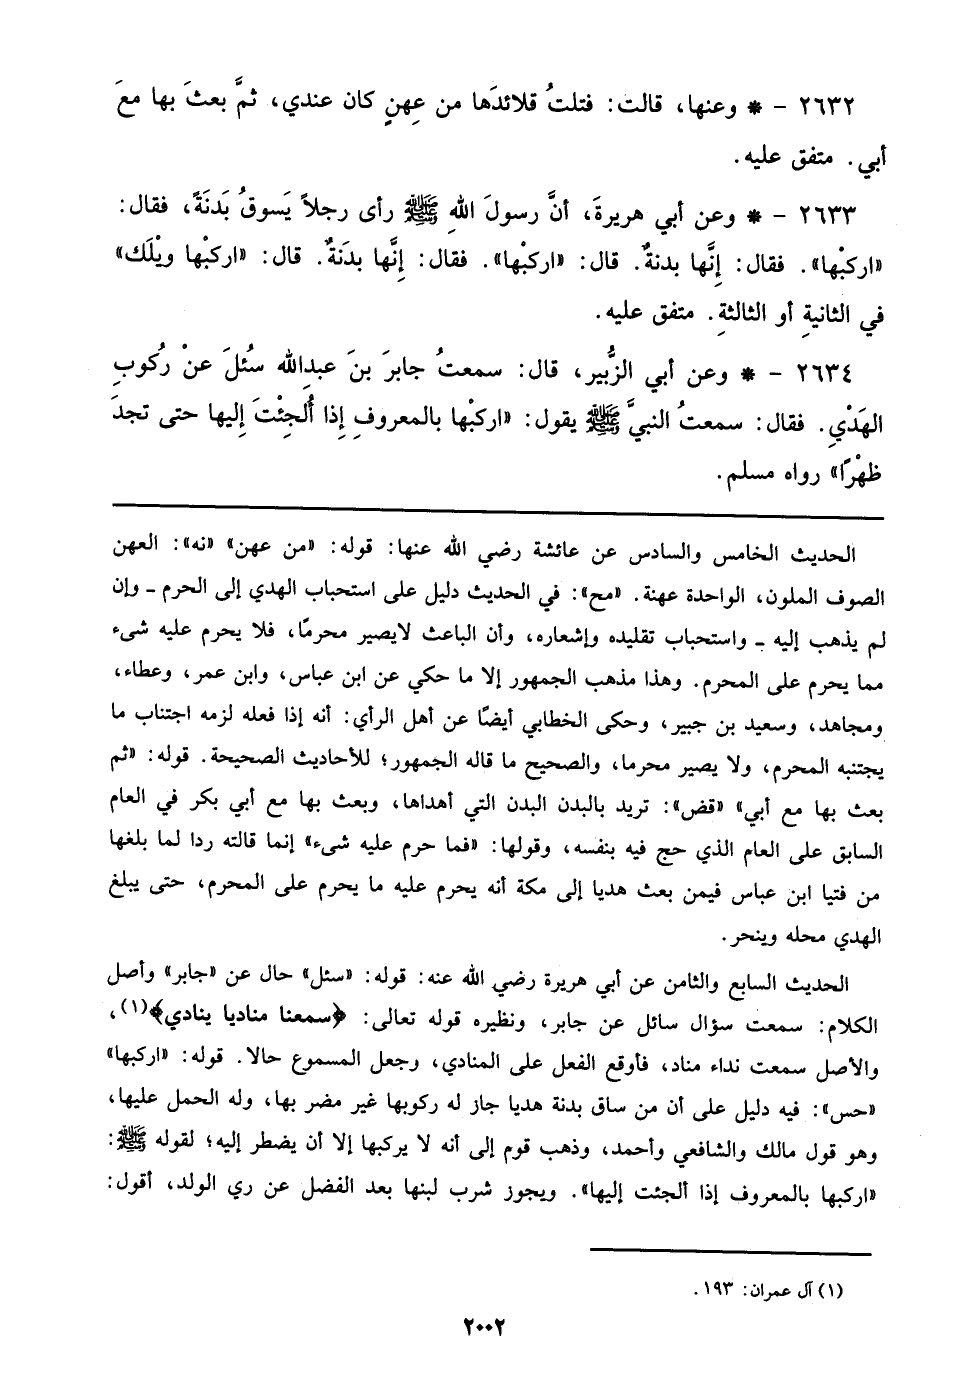 ٢٦٣٢ - * وعنها، قالت: فتلتُ قلائدَها من عِهنٍ كان عندي، ثمَّ بعثَ بها معَ
أبي. متفق عليه.
٢٦٣٣ - * وعن أبي هريرةَ، أنَّ رسولَ اللهِ ﷺ رأى رجلاً يَسوقُ بَدَنَةً، فقال:
«اركبْها». فقال: إِنَّها بدنةٌ. قال: «اركبْها». فقال: إِنَّها بدَنةٌ. قال: «اركبْها ويْلَك»
في الثانيةِ أو الثالثةِ. متفق عليه.
٢٦٣٤ - * وعن أبي الزُّبير، قال: سمعتُ جابرَ بنَ عبدِالله سُئلَ عنْ رُكوبِ
الهَدْيِ. فقال: سمعتُ النبيَّ ﷺ يقول: «اركبْها بالمعروفِ إِذا أُلجِئْتَ إِليها حتى تجدَ
ظهْرًا» رواه مسلم.
الحديث الخامس والسادس عن عائشة رضي الله عنها: قوله: «من عهن» «نه»: العهن
الصوف الملون، الواحدة عهنة. «مح»: في الحديث دليل على استحباب الهدي إلى الحرم ـ وإن
لم يذهب إليه ـ واستحباب تقليده وإشعاره، وأن الباعث لايصير محرمًا، فلا يحرم عليه شىء
مما يحرم على المحرم. وهذا مذهب الجمهور إلا ما حكي عن ابن عباس، وابن عمر، وعطاء،
ومجاهد، وسعيد بن جبير، وحكى الخطابي أيضًا عن أهل الرأي: أنه إذا فعله لزمه اجتناب ما
يجتنبه المحرم، ولا يصير محرما، والصحيح ما قاله الجمهور؛ للأحاديث الصحيحة. قوله: «ثم
بعث بها مع أبي» «قض»: تريد بالبدن البدن التي أهداها، وبعث بها مع أبي بكر في العام
السابق على العام الذي حج فيه بنفسه، وقولها: «فما حرم عليه شىء» إنما قالته ردا لما بلغها
من فتيا ابن عباس فيمن بعث هديا إلى مكة أنه يحرم عليه ما يحرم على المحرم، حتى يبلغ
الهدي محله وينحر.
الحديث السابع والثامن عن أبي هريرة رضي الله عنه: قوله: «سئل» حال عن «جابر» وأصل
الكلام: سمعت سؤال سائل عن جابر، ونظيره قوله تعالى: ﴿سمعنا مناديا ينادي﴾(١)،
والأصل سمعت نداء مناد، فأوقع الفعل على المنادي، وجعل المسموع حالا. قوله: «اركبها»
«حس»: فيه دليل على أن من ساق بدنة هديا جاز له ركوبها غير مضر بها، وله الحمل عليها،
وهو قول مالك والشافعي وأحمد، وذهب قوم إلى أنه لا يركبها إلا أن يضطر إليه؛ لقوله ﷺ:
«اركبها بالمعروف إذا ألجئت إليها». ويجوز شرب لبنها بعد الفضل عن ري الولد، أقول:
(١) آل عمران: ١٩٣.
٢٠٠٢